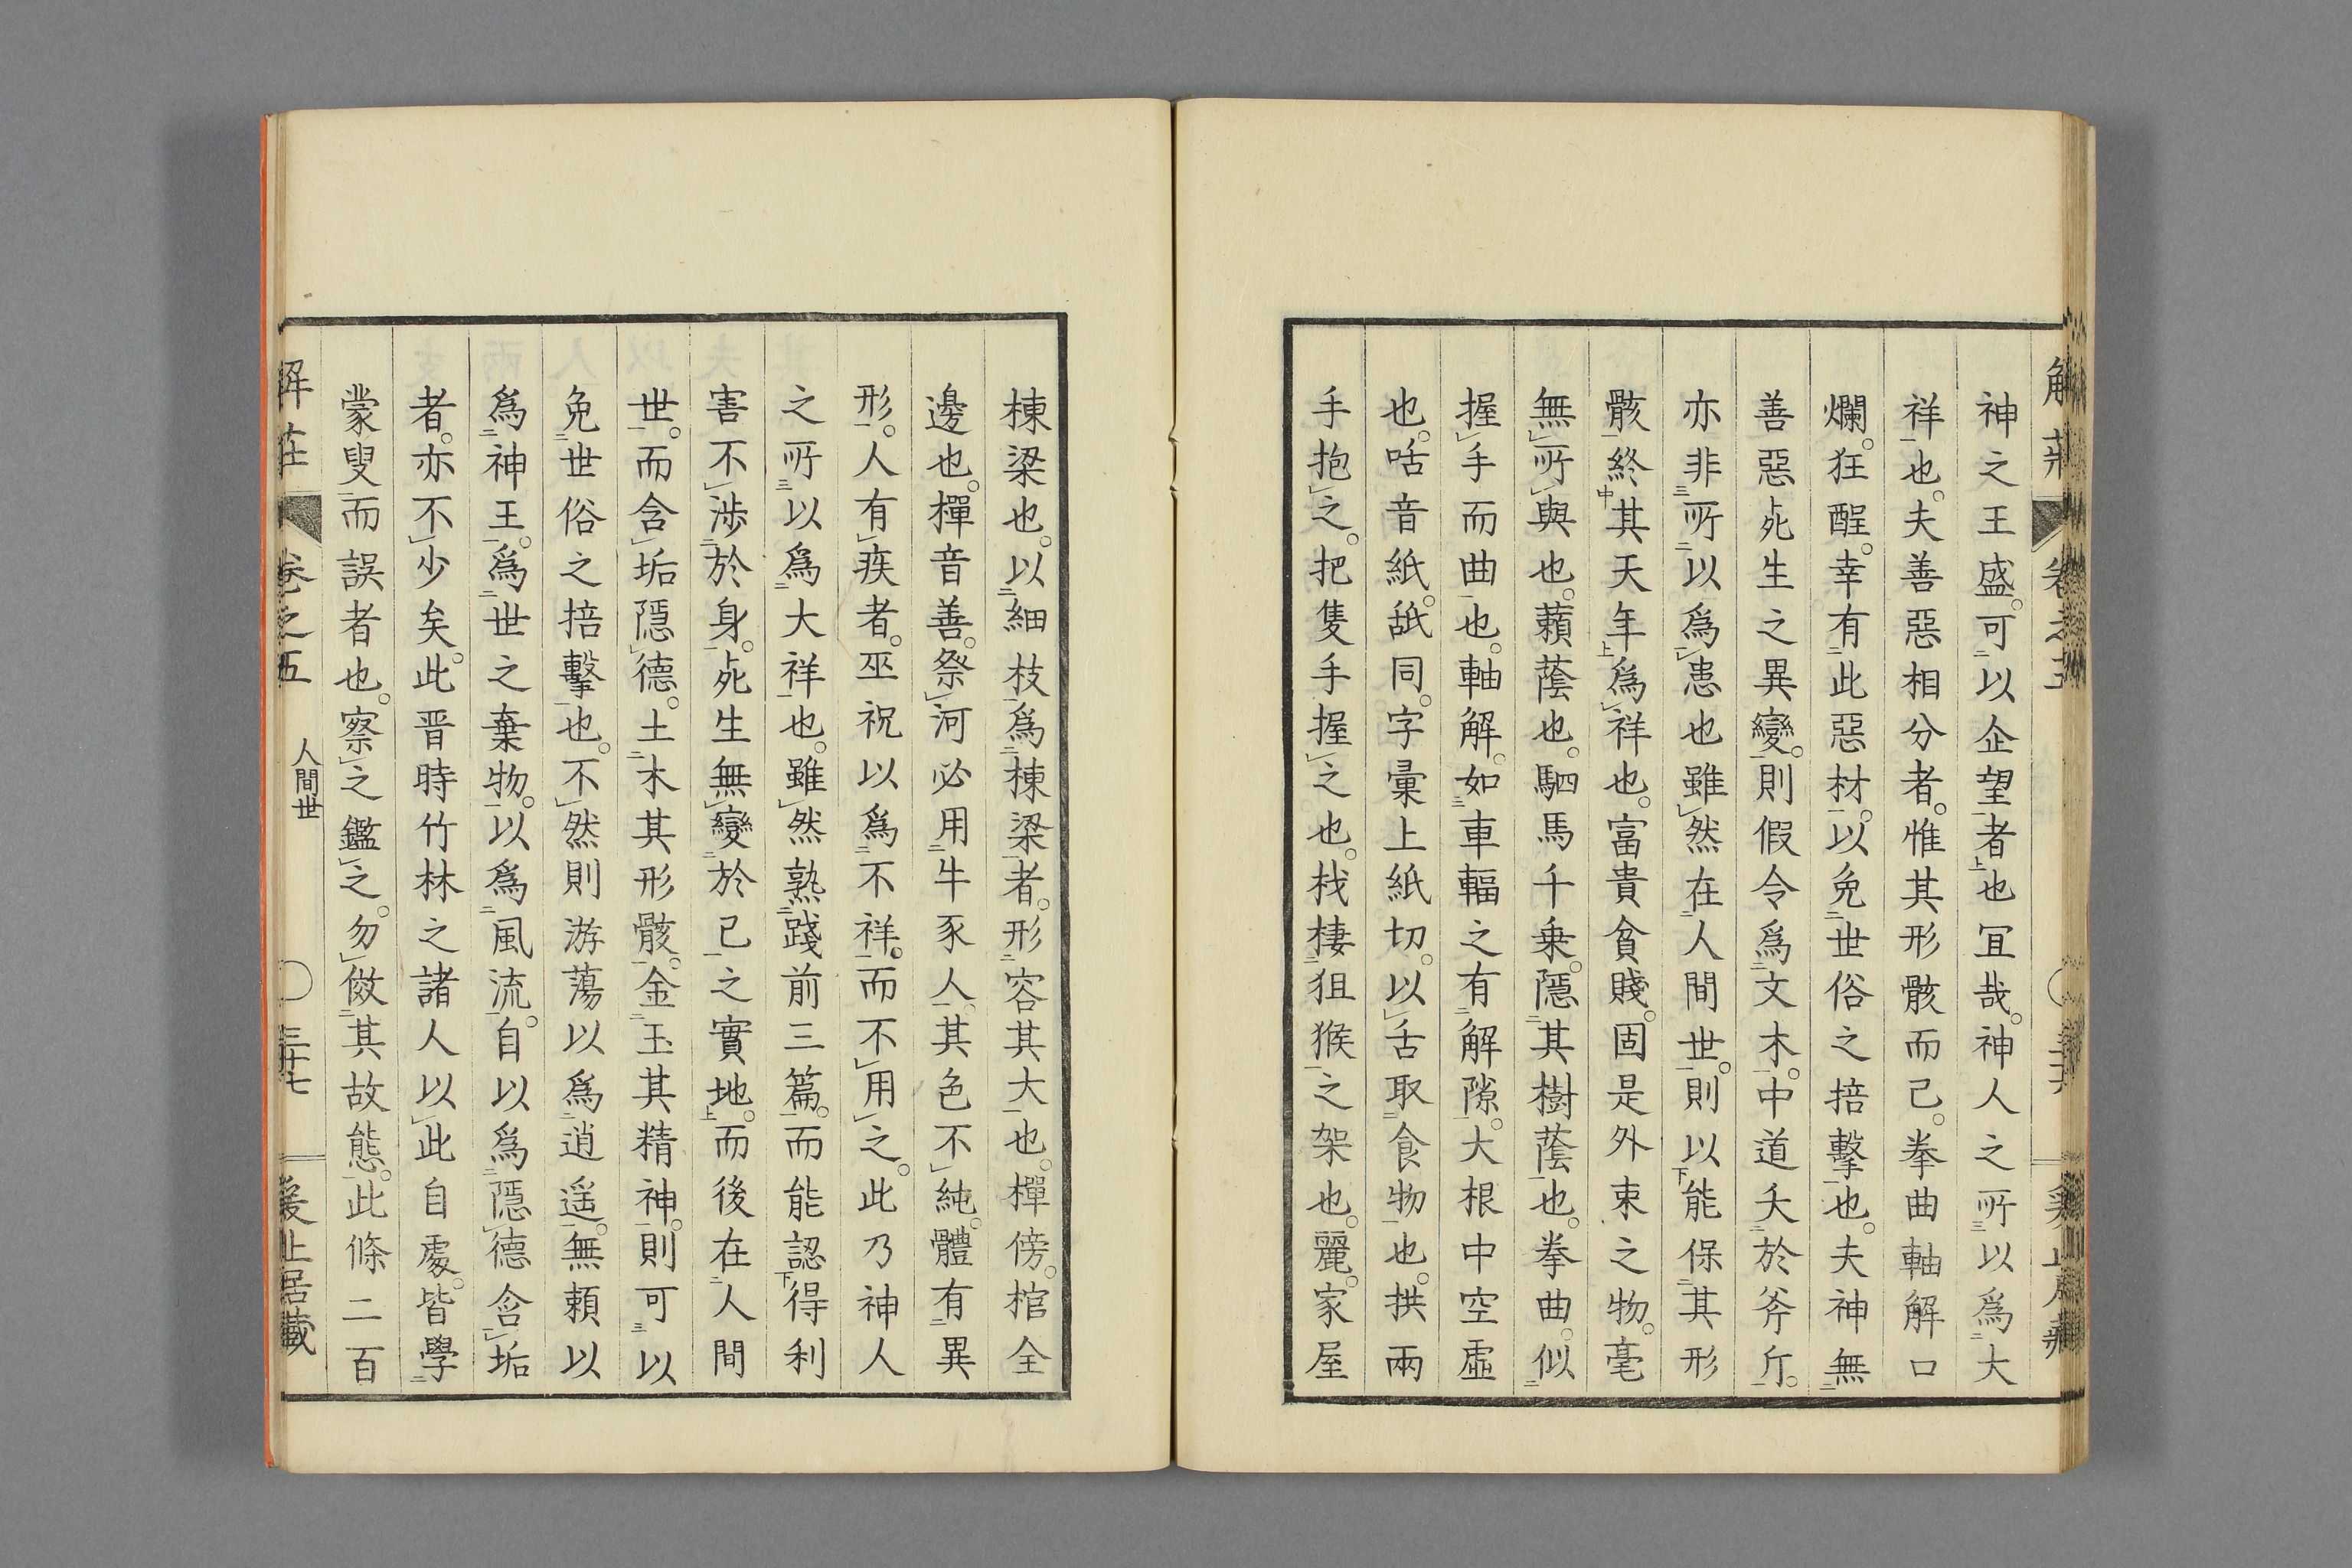 神之王盛。可以企望者也冝哉。神人之所以爲大
祥也。夫善惡相分者。惟其形骸而已。拳曲軸解口
爛。狂酲。幸有此惡材。以免世俗之掊擊也。夫神無
善惡死生之異變。則假令爲文木。中道夭於斧斤。
亦非所以爲患也雖然在人間世。則以能保其形
骸終其天年爲祥也。富貴貧賤。固是外束之物。毫
無所與也。藾蔭也。駟馬千乗。隱其樹蔭也。拳曲。似
握手而曲也。軸解。如車輻之有解隙。大根中空虛
也。咶音紙。舐同。字彙上紙切。以舌取食物也。拱兩
手抱之。把隻手握之也。栈棲狙猴之架也。麗。家屋
棟梁也。以細枝爲棟梁者。形容其大也。樿傍。棺全
邊也。樿音善。祭河必用牛豕人、其色不純。體有異
形。人有疾者。巫祝以爲不祥。而不用之。此乃神人
之所以爲大祥也。雖然熟踐前三篇。而能認得利
害不涉於身。死生無變於己之實地。而後在人間
世。而含垢隱德。土木其形骸。金玉其精神。則可以
免世俗之掊擊也。不然則游蕩以爲逍遥。無賴以
爲神王。爲世之棄物。以爲風流。自以爲隱德含垢
者。亦不少矣。此晋時竹林之諸人以此自處。皆學
蒙叟而誤者也。察之鑑之。勿傚其故態。此條二百
解莊 卷之五 人間世 三十七 爰止居藏